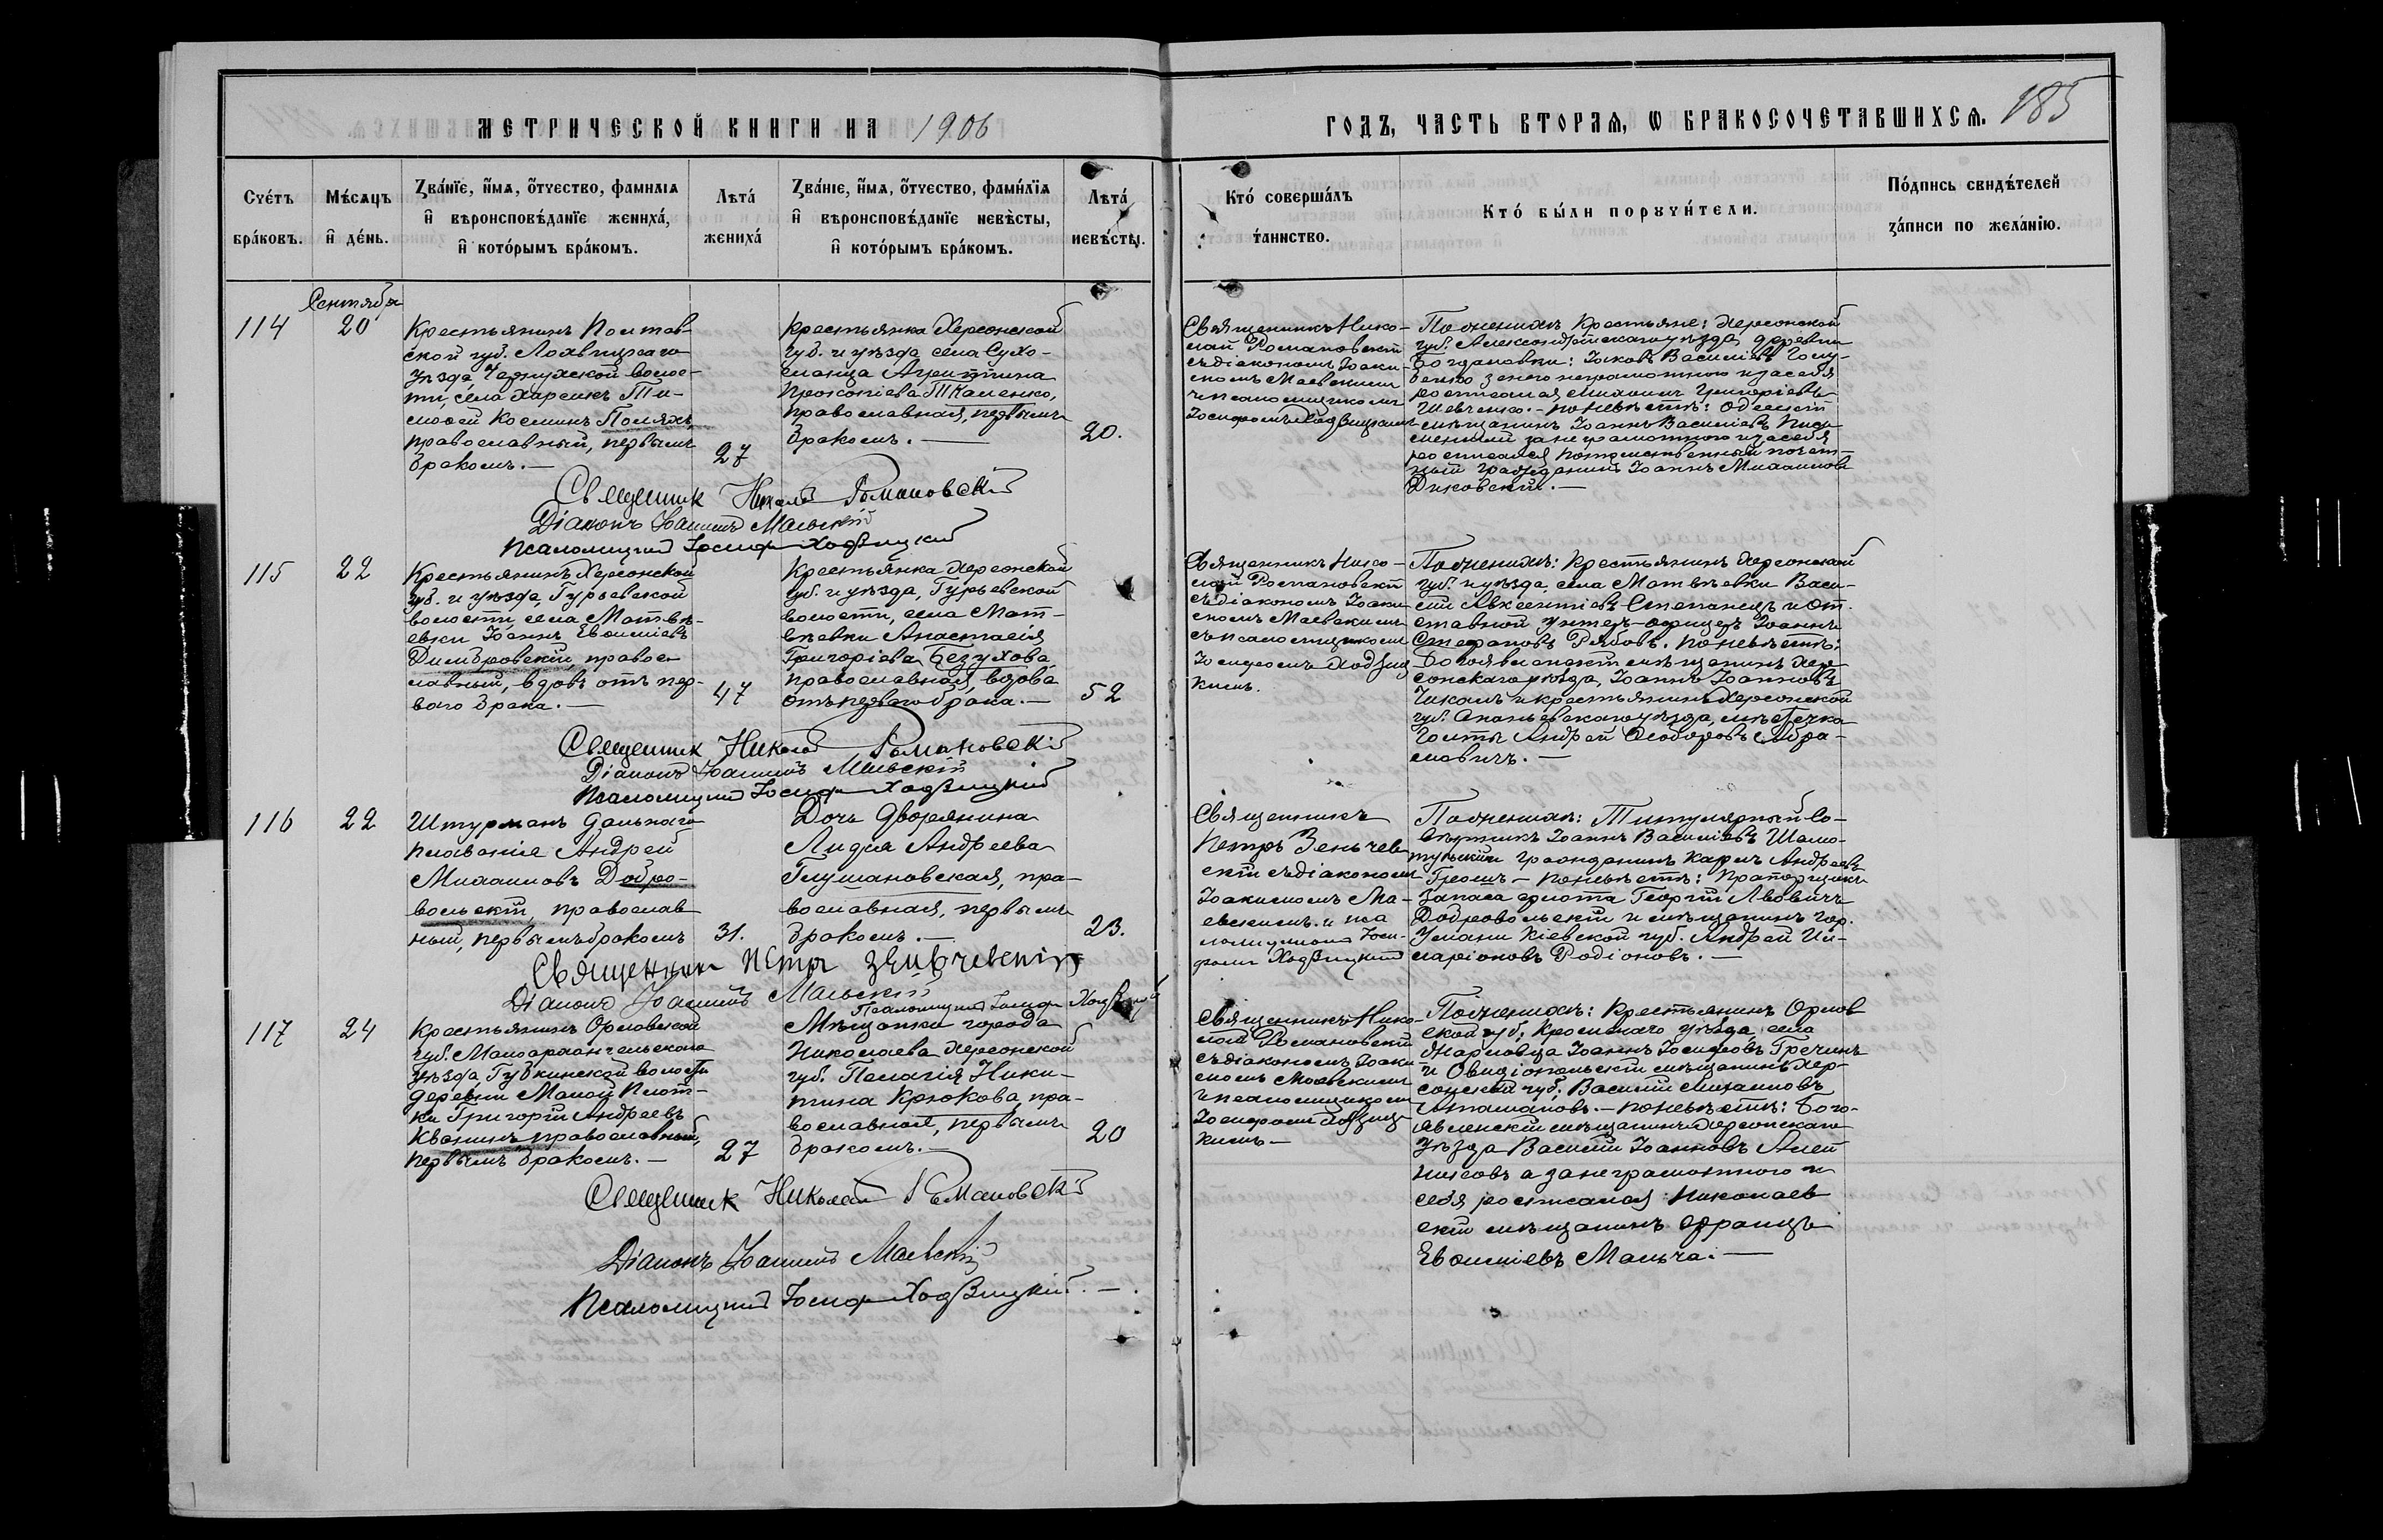 МЕТРИЧЕСКОЙ КНИГИ НА 1906
ГОДЪ, ЧАСТЬ ВТОРАѦ, Ѡ БРАКОСОЧЕТАВШИХСѦ. 185
Сче́тъ бра́ковъ.
Мѣ́сѧцъ и҆ де́нь.
Зва́нїе, и҆́мѧ, ѻ҆́тчество, фамилїѧ
и҆ вѣроисповѣ́данїе жениха́,
и҆ кото́рымъ бра́комъ.
Лѣта́ жениха́
Зва́нїе, и҆́мѧ, ѻ҆́тчество, фами́лїѧ
и҆ вѣроисповѣ́данїе невѣ́сты,
и҆ кото́рымъ бра́комъ.
Лѣта́ невѣ́сты.
Кто́ соверша́лъ
та́инство.
Кто́ бы́ли порꙋчи́тели.
По́дпись свидѣ́телей
за́писи по жела́нїю.
Сентября
114
20
Крестьянинъ Полтав-
ской губ. Лохвицкаго
уѣзда, Чернухской волос-
ти, села Харсикъ Ти-
мофей Косминъ Поляхъ,
православный, первымъ
бракомъ.—
27
Крестьянка Херсонской
губ. и уѣзда, села Сухо-
еланца Агриппина
Прокопіева Ткаменко,
православная, первымъ
бракомъ.—
20.
Священникъ Нико-
лай Романовскій
съ діакономъ Іоаки-
момъ Маевскимъ
и псаломщикомъ
Іосифомъ Ходзицкимъ
По женихѣ крестьяне: Херсонской
губ. Александрійскаго уѣзда деревни
Богдановки: Іаковъ Василіевъ Голу-
бенко за него неграмотного и за себя
росписался Михаилъ Григоріевъ
Шевченко.— по невѣстѣ: Одесскій
мѣщанинъ Іоаннъ Василіевъ Пись-
менный за неграмотного и за себя
росписался потомственный почет-
ный гражданинъ Іоаннъ Михаиловъ
Диковскій.—
Священникъ Николай Романовскій
Діаконъ Іоакимъ Маевскій
Псаломщикъ Іосифъ Ходзицкій
115
22
Крестьянинъ Херсонской
губ. и уѣзда, Гурьевской
волости, села Матвѣ-
евки Іоаннъ Евѳиміевъ
Димбровскій, правос-
лавный, вдовъ отъ пер-
ваго брака.—
47
Крестьянка Херсонской
губ. и уѣзда, Гурьевской
волости, села Мат-
вѣевки Анастасія
Григоріева Безухова,
православная, вдова
отъ перваго брака.—
52
Священникъ Нико-
лай Романовскій
съ діакономъ Іоаки-
момъ Маевскимъ
съ псаломщикомъ
Іосифомъ Ходзиц-
кимъ.
По женихѣ: крестьянинъ Херсонской
губ. и уѣзда, села Матвѣевки Васи-
лій Авксентіевъ Степанецъ и от-
ставной унтеръ-офицеръ Іоаннъ
Стефановъ Рябовъ. по невѣстѣ:
Богоявленскій мѣщанинъ Хер-
сонскаго уѣзда, Іоаннъ Іоанновъ
Чикалъ и крестьянинъ Херсонской
губ. Ананьевскаго уѣзда, мѣстечка
Голты Андрей Ѳеодоровъ Абра-
мовичъ.—
Священникъ Николай Романовскій
Діаконъ Іоакимъ Маевскій
Псаломщикъ Іосифъ Ходзицкій
116
22
Штурманъ дальнаго
плаванія Андрей
Михаиловъ Добро-
вольскій, православ
ный, первымъ бракомъ
31.
Дочь дворянина
Лидія Андреева
Глумановская, пра-
вославная, первымъ
бракомъ.—
23.
Священникъ
Петръ Зеньчев
скій съ діакономъ
Іоакимомъ Ма-
евскимъ и пса
ломщикомъ Іоси-
фомъ Ходзицкимъ
По женихѣ: Титулярный Со-
вѣтникъ Іоаннъ Василіевъ Шамо-
тульскій и гражданинъ Карлъ Андреевъ
Громъ— по невѣстѣ: Прапорщикъ
запаса флота Георгій Львовичъ
Добровольскій и мѣщанинъ гор.
Умани Кіевской губ. Андрей Ил-
ларіоновъ Родіоновъ.—
Священникъ Петръ Зеньчевскій
Діаконъ Іоакимъ Маевскій
Псаломщикъ Іосифъ Ходзицкій
117
24
Крестьянинъ Орловской
губ. Малоархангельскаго
уѣзда, Губкинской волости
деревни Малой Плот-
ки Григорій Андреевъ
Кванинъ православный,
первымъ бракомъ.—
27
Мѣщанка города
Николаева Херсонской
губ. Пелагія Ники-
тина Крюкова, пра-
вославная, первымъ
бракомъ.—
20
Священникъ Нико-
лай Романовскій
съ діакономъ Іоаки-
момъ Маевскимъ
и псаломщикомъ
Іосифомъ Ходзиц-
кимъ—
По женихѣ: крестьянинъ Орлов
ской губ. Кромскаго уѣзда, села
Жарловца Іоаннъ Іосифовъ Гречинъ
и Овидіопольскій мѣщанинъ Хер-
сонской губ. Василій Михаиловъ
Атамановъ.— по невѣстѣ: Бого-
явленскій мѣщанинъ Херсонскаго
уѣзда Василій Іоанновъ Алей
никовъ а за неграмотного и
себя росписался Николаев
скій мѣщанинъ Францъ
Евѳиміевъ Мальча.—
Священникъ Николай Романовскій
Діаконъ Іоакимъ Маевскій
Псаломщикъ Іосифъ Ходзицкій.—